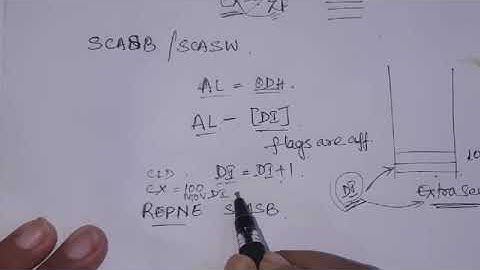 CX
ZF
SCASB / SCASW.
AL = 0DH.
AL - [DI]
flags are aff.
CLD. DI = DI + 1.
CX = 100
MOV DI
REPNE SCASB.
10
DI
Extra Se